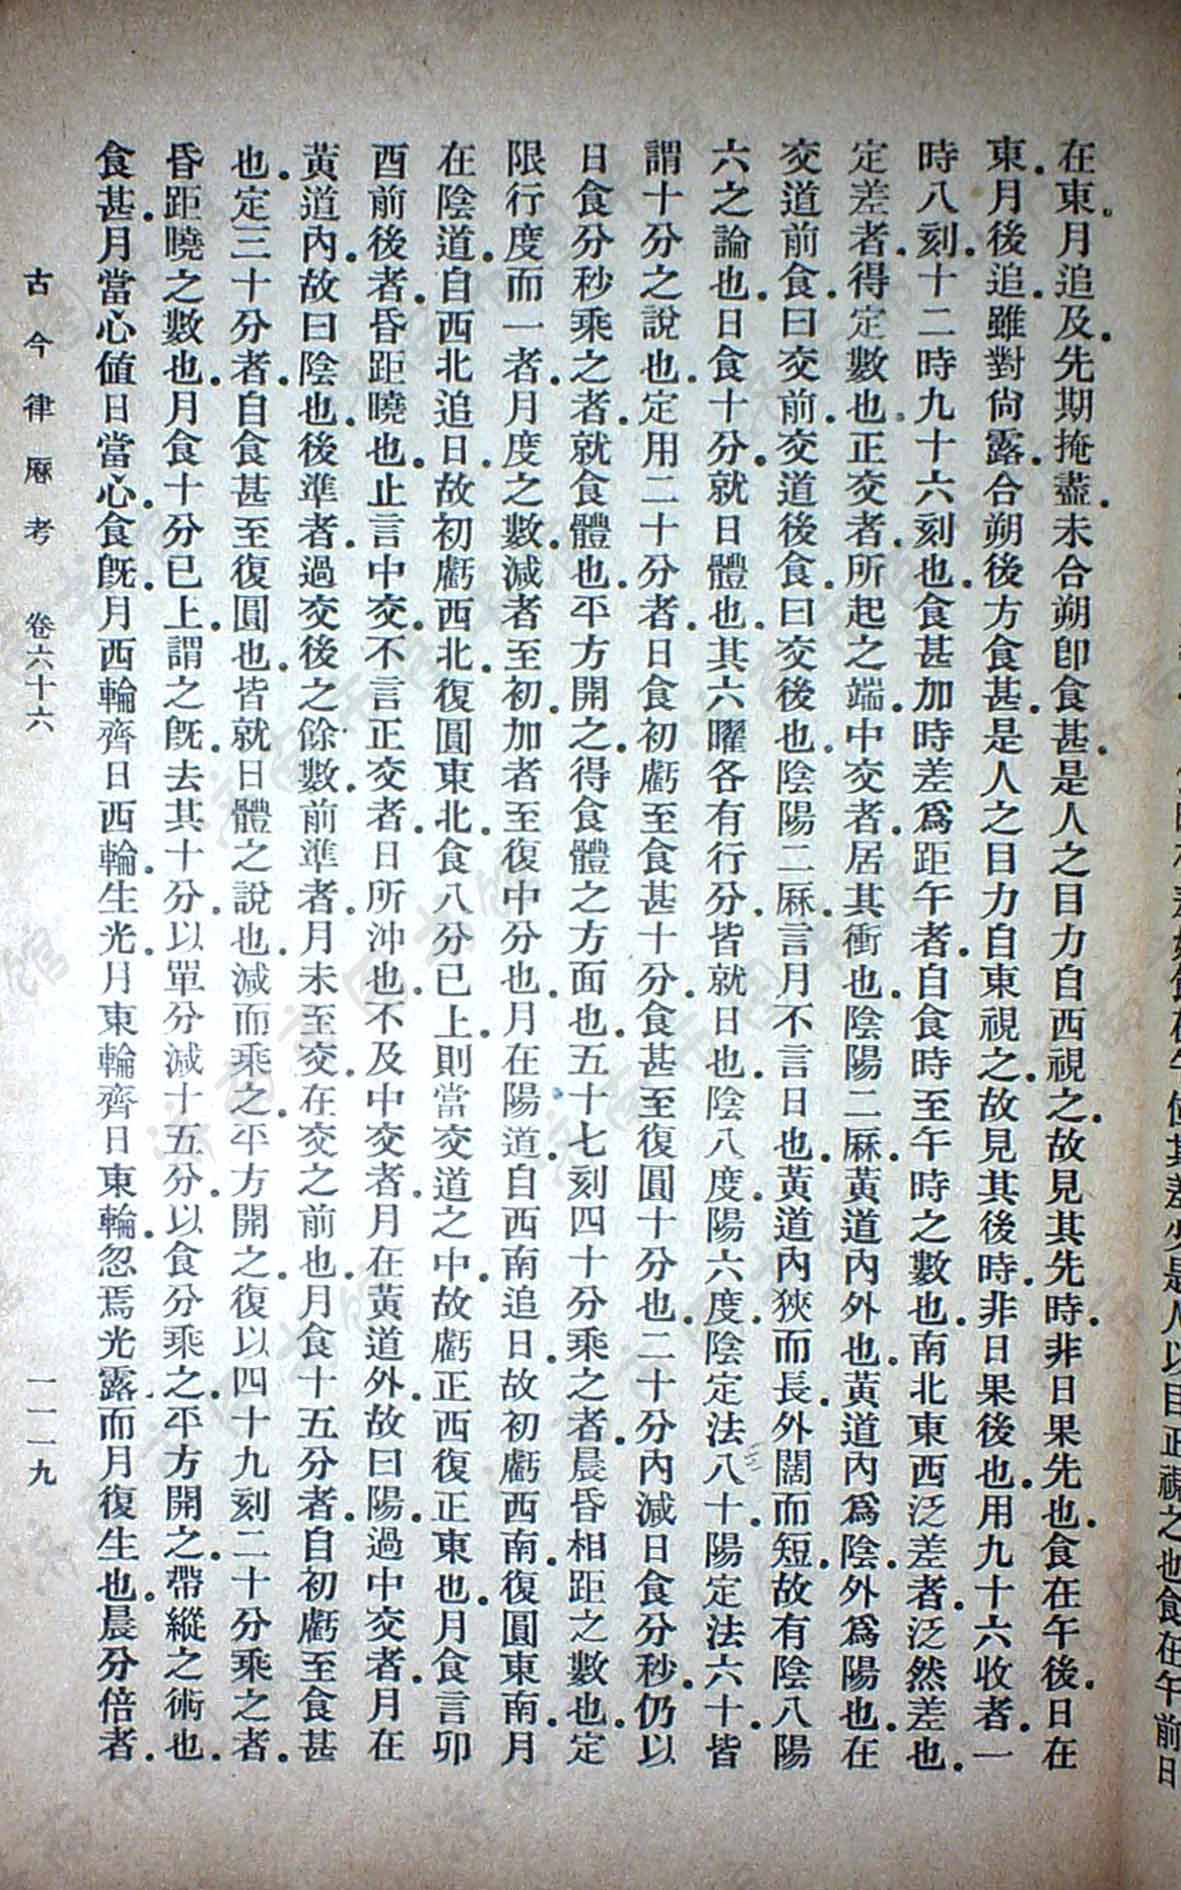 在東。月追及。先期掩蓋。未合朔即食甚。是人之目力自西視之。故見其先時。非日果先也。食在午後。日在
東。月後追。雖對尙露。合朔後方食甚。是人之目力自東視之。故見其後時。非日果後也。用九十六收者。一
時八刻。十二時九十六刻也。食甚加時差爲距午者。自食時至午時之數也。南北東西泛差者。泛然差也。
定差者。得定數也。正交者。所起之端。中交者。居其衝也。陰陽二厤。黃道內外也。黃道內爲陰。外爲陽也。在
交道前食。曰交前。交道後食。曰交後也。陰陽二厤。言月不言日也。黃道內狹而長。外闊而短。故有陰八陽
六之論也。日食十分。就日體也。其六曜各有行分。皆就日也。陰八度。陽六度。陰定法八十。陽定法六十。皆
謂十分之說也。定用二十分者。日食初虧至食甚十分。食甚至復圓十分也。二十分內減日食分秒。仍以
日食分秒乘之者。就食體也。平方開之。得食體之方面也。五十七刻四十分乘之者。晨昏相距之數也。定
限行度而一者。月度之數。減者至初。加者至復中分也。月在陽道。自西南追日。故初虧西南。復圓東南。月
在陰道。自西北追日。故初虧西北。復圓東北。食八分已上。則當交道之中。故虧正西復正東也。月食言卯
酉前後者。昏距曉也。止言中交。不言正交者。日所沖也。不及中交者。月在黃道外。故曰陽。過中交者。月在
黃道內。故曰陰也。後準者。過交後之餘數。前準者。月未至交。在交之前也。月食十五分者。自初虧至食甚
也。定三十分者。自食甚至復圓也。皆就日體之說也。減而乘之。平方開之。復以四十九刻二十分乘之者。
昏距曉之數也。月食十分已上。謂之旣。去其十分。以單分減十五分。以食分乘之。平方開之。帶縱之術也。
食甚。月當心値日當心。食旣。月西輪齊日西輪。生光。月東輪齊日東輪。忽焉光露。而月復生也。晨分倍者。
古今律厤考 卷六十六 一一一九